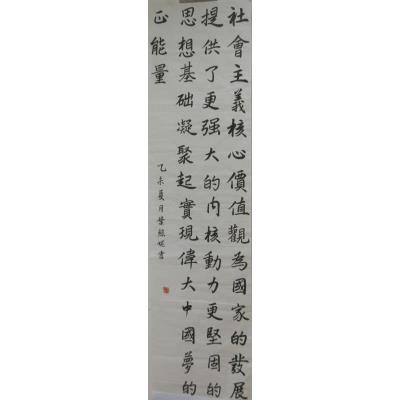 社會主義核心價值觀為國家的發展
提供了更强大的内核動力更堅固的
思想基础凝聚起實現偉大中國夢的
正能量
乙未夏月葉
書